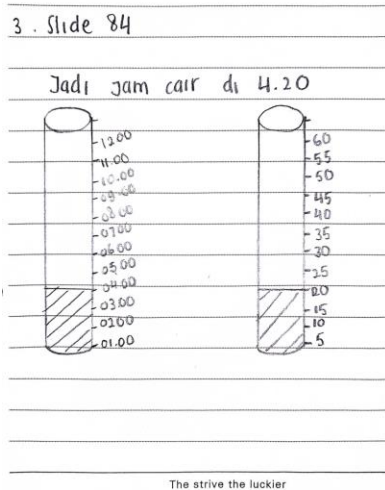 3. Slide 84
Jadi jam cair di 4.20
12.00
11.00
10.00
09.00
08.00
07.00
06.00
05.00
04.00
03.00
02.00
01.00
60
55
50
45
40
35
30
25
20
15
10
5
The strive the luckier